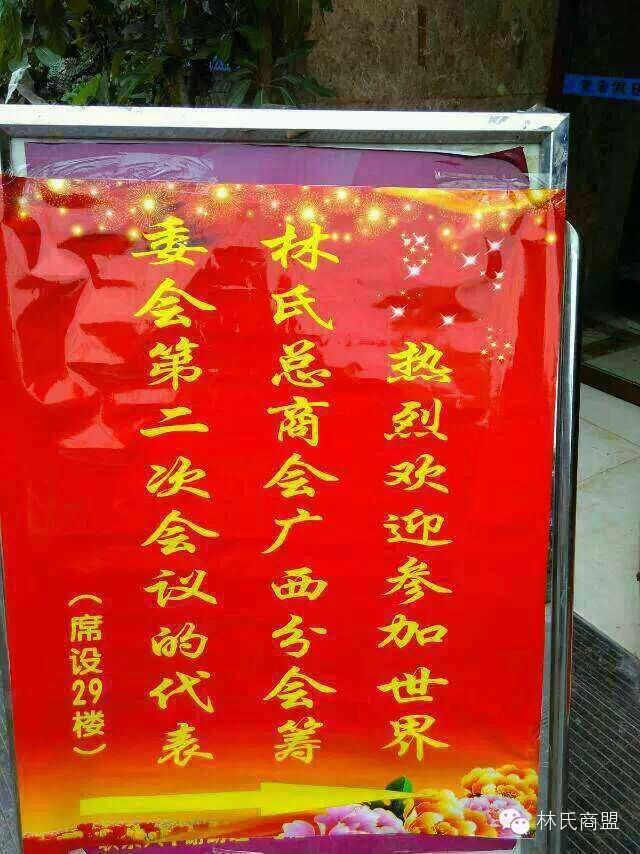 热烈欢迎参加世界
林氏总商会广西分会筹
委会第二次会议的代表
（席设29楼）
林氏商盟